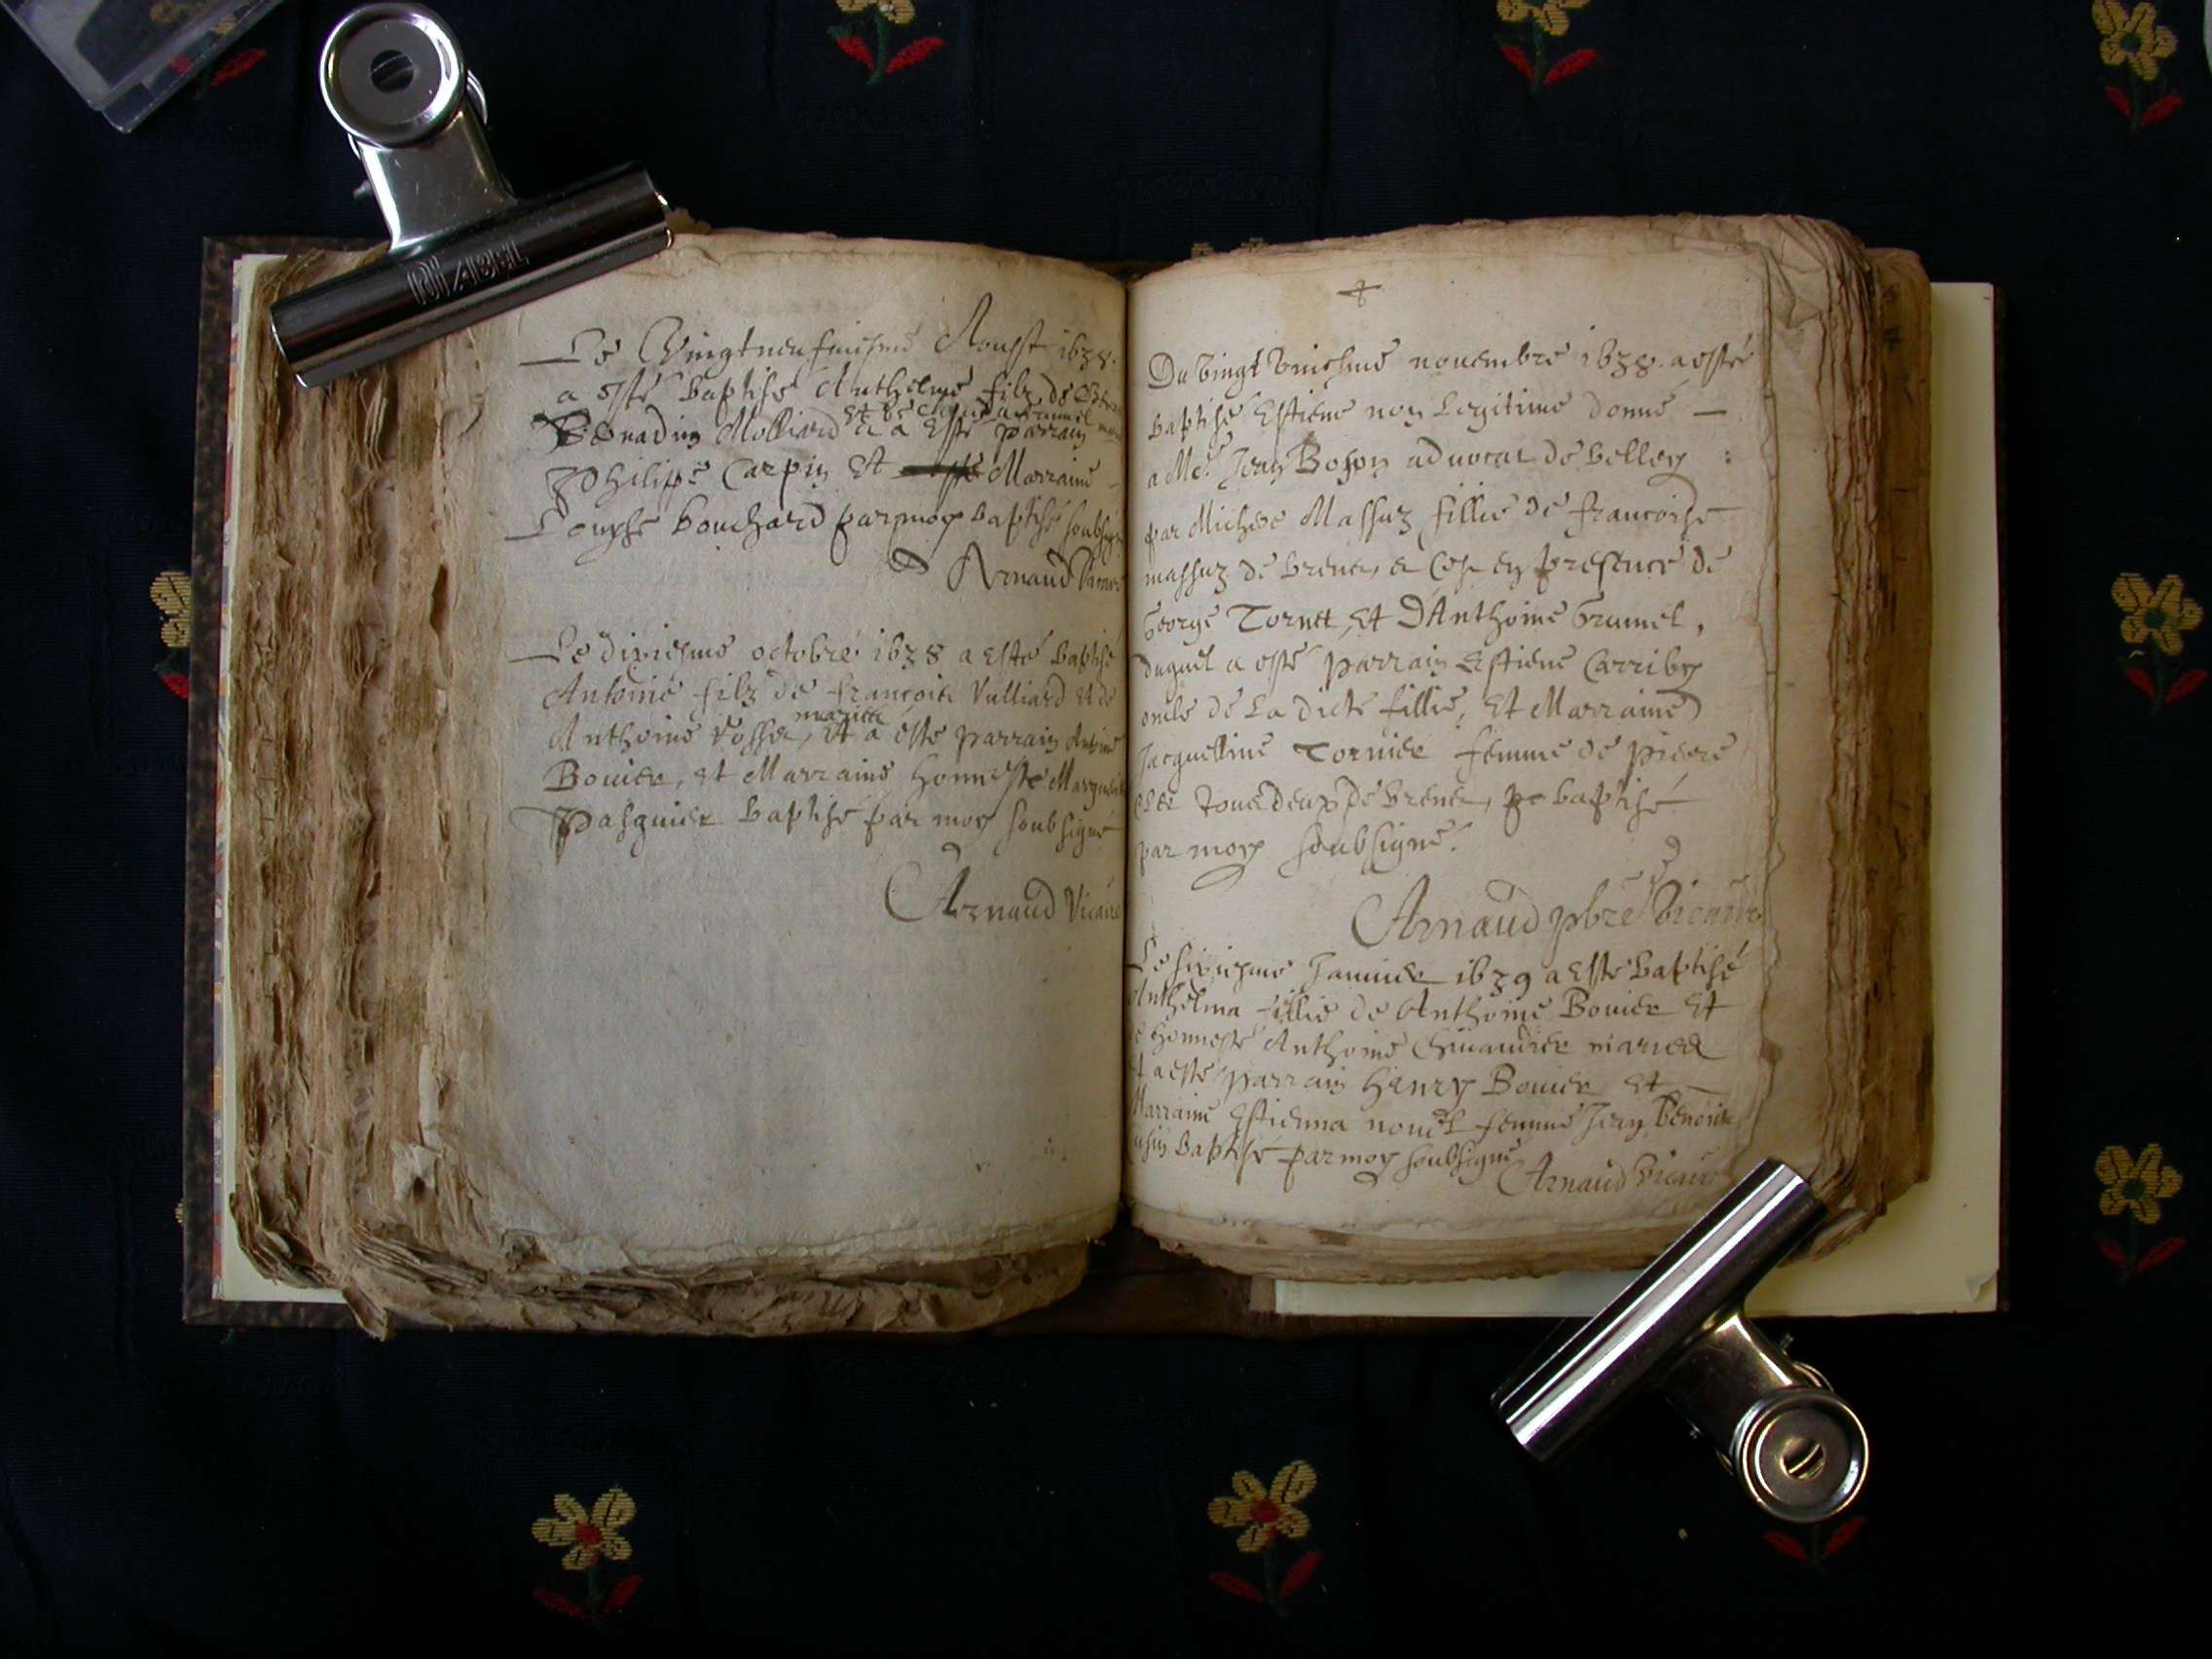 DIZABEL
Le Vingtneufuiesme Aoust 1638.
a esté baptisé Anthelme filz de
et de Claude
Bernadin Molliard et a esté parrain
Philipe Carpin et Marraine
Louyse bouchard par moy baptisé soubsigné
Arnaud
Le dixiesme octobre 1638 a esté baptisé
Antoine filz de francois Vulliard et de
mariée
Anthoine Rosset, et a esté parrain Antoine
Bouier, et Marraine honneste Marguerite
Pasquier baptisé par moy soubsigné
Arnaud Vicaire
Du vingt uniesme nouembre 1638. a esté
baptisé Estiene non legitime donné
a Me. Jean Boson aduocat de belley
par Michere Massuz fillie de francoise
massuz de brenes, et Ce en presence de
George Tornet, et D'Anthoine brunel,
duquel a esté parrain Estiene Carriby
oncle de la dicte fillie, et Marraine
Jacquettine Tornier femme de pierre
tous deux de brenes, baptisé
par moy soubsigné.
Arnaud pbre vicaire
Le sixiesme Januier 1639 a esté baptisé
Anthelma fillie de Anthoine Bouier et
de honneste Anthoine mariez
et a esté parrain Henry Bouier et
Marraine Estienna nouel femme Jean benoist
baptisé par moy soubsigné
Arnaud vicaire